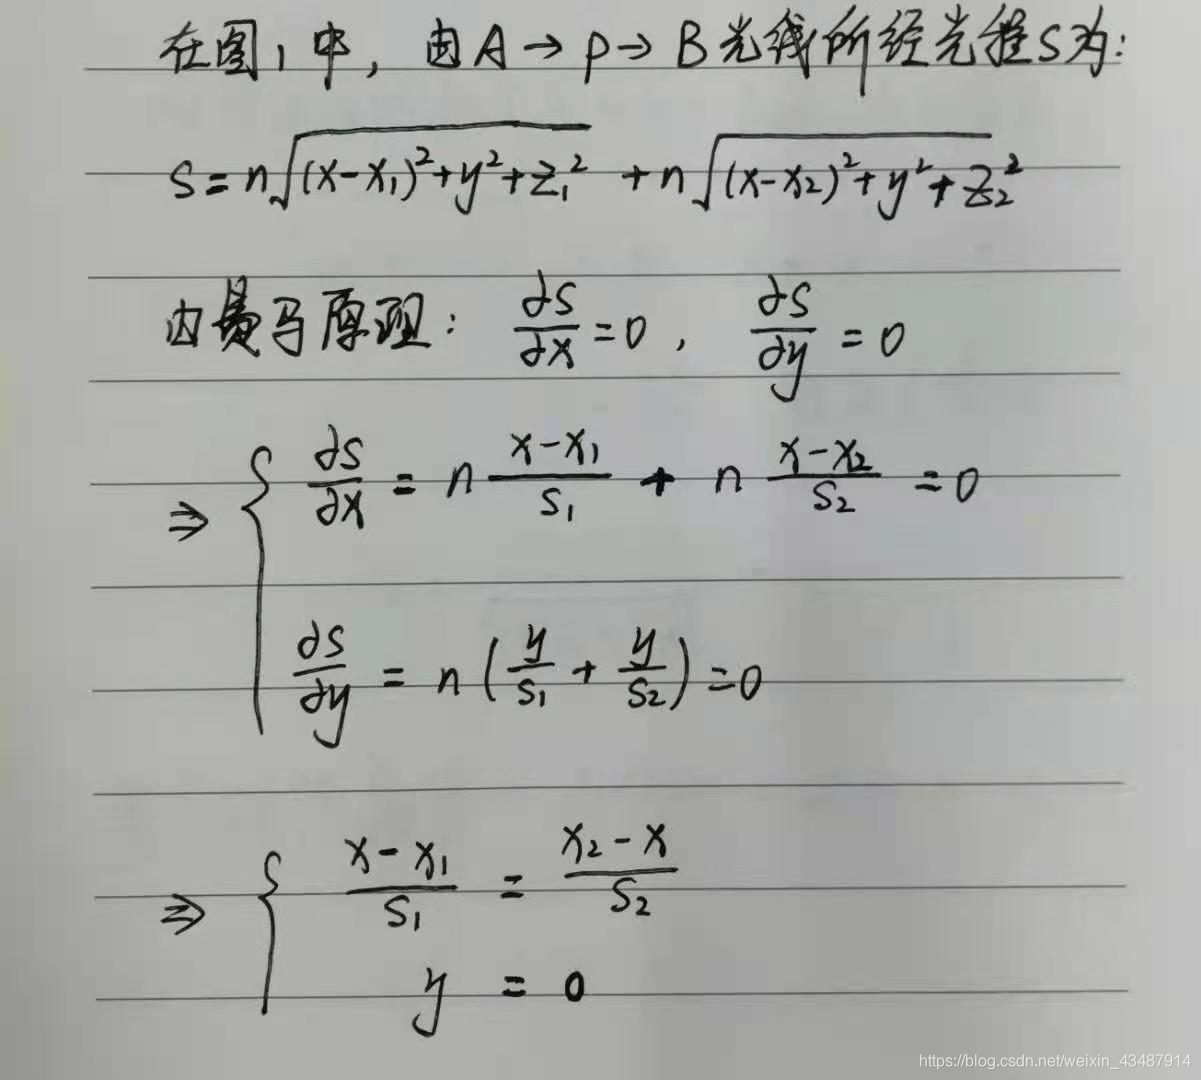 在图1中，由A→P→B光线所经光程S为：
S=n√((x-x₁)²+y²+z₁²) +n√((x-x₂)²+y²+z₂²)
由费马原理： ∂S/∂x=0， ∂S/∂y=0
⇒ { ∂S/∂x = n (x-x₁)/S₁ + n (x-x₂)/S₂ =0
∂S/∂y = n(y/S₁ + y/S₂)=0
⇒ { (x-x₁)/S₁ = (x₂-x)/S₂
y = 0
https://blog.csdn.net/weixin_43487914